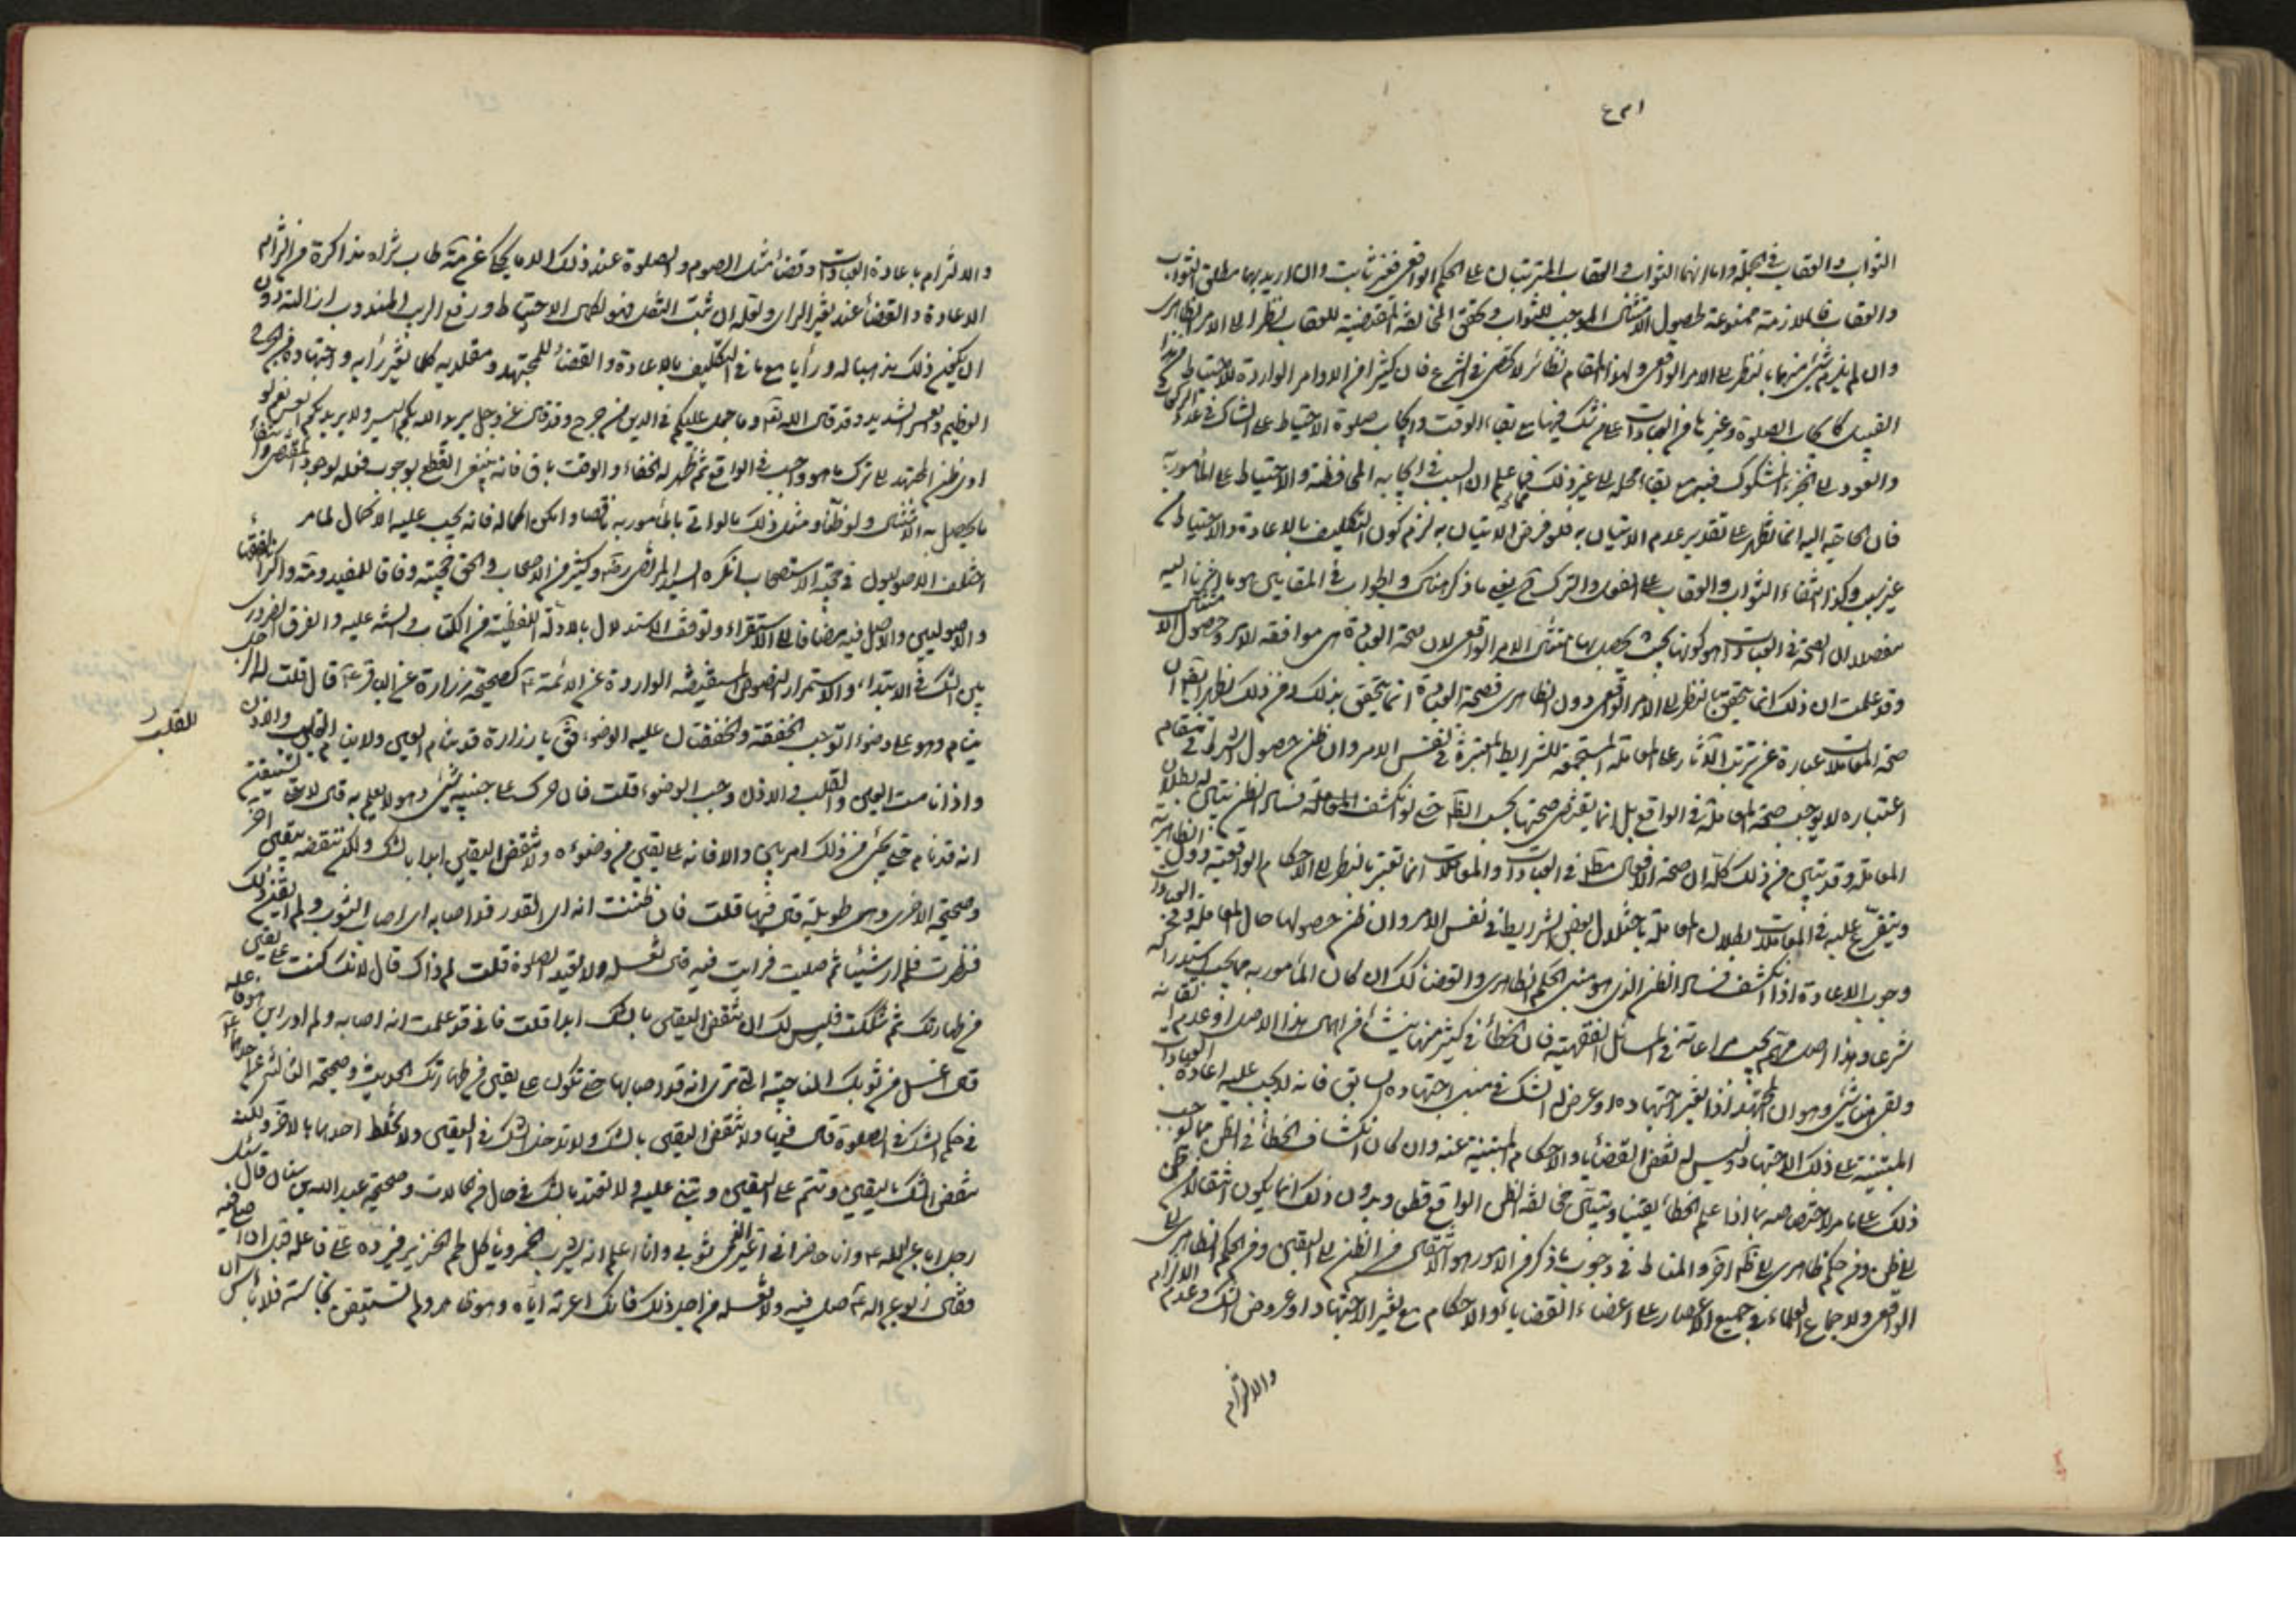 الثواب والعقاب في الجملة واما انهما الثواب والعقاب المترتبان على الحكم الواقعي فغير ثابت وان اريد بهما مطلق الثواب
والعقاب فالملازمة ممنوعة لحصول الامتثال الموجب للثواب وتحقق المخالفة المقتضية للعقاب نظرا الى الامر الظاهري
وان لم يلزم شيء منهما بالنظر الى الامر الواقعي ولهذا المقام نظائر لا تحصى في الشرع فان كثيرا من الاوامر الواردة للاحتياط من هذا
القبيل كايجاب الصلوة وغيرها من العبادات على من شك فيها مع بقاء الوقت وايجاب صلوة الاحتياط على الشاك في عدد الركعات
والعود الى الجزء المشكوك فيه مع بقاء محله الى غير ذلك مما علم ان السبب في ايجابه المحافظة والاحتياط على المأمور به
فان الحاجة اليه انما تظهر على تقدير عدم الاتيان به فلو فرض الاتيان به لزم كون التكليف بالاعادة والاحتياط
غير سبب وكذا انتفاء الثواب والعقاب على الفعل والترك ما ذكر هناك والجواب في المقامين هو ما اشرنا اليه
مفصلا ان الصحة في العبادات هو كونها بحيث يحصل بها امتثال الامر الواقعي لان صحة العبادة هي موافقة الامر وحصول الامتثال
وقد علمت ان ذلك انما يتحقق بالنظر الى الامر الواقعي دون الظاهري فصحة العبادة انما يتحقق بذلك ومن ذلك يظهر ايضا ان
صحة المعاملات عبارة عن ترتب الآثار على المعاملة المستجمعة للشرايط المعتبرة في نفس الامر وان ظن حصول الشرط في مقام
اعتباره لا يوجب صحة المعاملة في الواقع بل انما يقتضي صحتها بحسب الظاهر حتى لو انكشف للمعامل فساد الظن تبين له بطلان
المعاملة وقد تبين من ذلك كله ان صحة الافعال مطلقا في العبادات والمعاملات انما تعتبر بالنظر الى الاحكام الواقعية دون الظاهرية
ويتفرع عليه في المعاملات بطلان المعاملة باختلال بعض الشرايط في نفس الامر وان ظن حصولها حال المعاملة وفي العبادات
وجوب الاعادة اذا انكشف فساد الظن الذي هو مبنى الحكم الظاهري والقضاء كذلك ان كان المأمور به مما يجب استدراكه
شرعا وهذا اصل مهم يجب مراعاته في المسائل الفقهية فان الخطأ في كثير منها ينشأ من اهمال هذا الاصل او عدم اتقانه
وبقي هنا شيء وهو ان المجتهد اذا تغير اجتهاده او عرض له الشك في مبنى اجتهاده السابق فانه لا يجب عليه اعادة العبادات
المبتنية على ذلك الاجتهاد وليس له نقض القضايا والاحكام المبتنية عنه وان كان انكشاف الخطأ في الظن مما يوجب
ذلك على ما مر لاختصاصه بما اذا علم الخطأ يقينا وتبين مخالفة الظن الواقع قطعا وبدون ذلك انما يكون انتقالا من ظن
الى ظن ومن حكم ظاهري الى ظاهر آخر والمناط في وجوب ما ذكر من الامور هو الانتقال من الظن الى اليقين ومن الحكم الظاهري الى
الواقعي ولاجماع العلماء في جميع الاعصار على امضاء القضايا والاحكام مع تغير الاجتهاد او عروض الشك وعدم الالزام
والالتزام
والالتزام باعادة العبادات وقضاء مثل الصوم والصلوة عند ذلك الا ما يحكى عن العلامة طاب ثراه من التزام
الاعادة والقضاء عند تغير الرأي ولعله ان ثبت النقل فهو لكمال الاحتياط ورفع الريب المندوب ازالته دون
ان يكون ذلك مذهبا له ورأيا مع ما في التكليف بالاعادة والقضاء للمجتهد ومقلديه كلما تغير رأيه واجتهاده من الحرج
العظيم والعسر الشديد وقد قال الله تعالى وما جعل عليكم في الدين من حرج وقد قال عز وجل يريد الله بكم اليسر ولا يريد بكم العسر نعم لو
ادى ظن المجتهد الى ترك ما هو واجب في الواقع ثم ظهر له الخطاء والوقت باق فانه ينبغي القطع بوجوب فعله لوجود المقتضى وانتفاء
ما يحصل به الامتثال ولو ظنا ومثل ذلك ما لو اتى بالمأمور به ناقصا وامكن اكماله فانه يجب عليه الاكمال لما مر
اختلف الاصوليون في حجية الاستصحاب فانكره السيد المرتضى وكثير من الاصحاب والحق حجيته وفاقا للمفيد والعلامة واكثر الفقهاء
والاصوليين والاصل فيه مضافا الى الاستقراء وتوقف الاستدلال بالادلة اللفظية من الكتاب والسنة عليه والفرق الضروري
بين الشك في الابتداء والاستمرار النصوص المستفيضة الواردة عن الائمة ع كصحيحة زرارة عن الباقر ع قال قلت له الرجل
ينام وهو على وضوء اتوجب الخفقة والخفقتان عليه الوضوء فقال يا زرارة قد ينام العين ولا ينام القلب والاذن
للقلب
واذا نامت العين والقلب والاذن وجب الوضوء قلت فان حرك على جنبه شيء وهو لا يعلم به قال لا حتى يستيقن
انه قد نام حتى يجيء من ذلك امر بين والا فانه على يقين من وضوئه ولا تنقض اليقين ابدا بالشك ولكن تنقضه بيقين آخر
وصحيحة الاخرى وهي طويلة قال فيها قلت فان ظننت انه اي القذر قد اصابه اي اصاب الثوب ولم اتيقن ذلك
فنظرت فلم ار شيئا ثم صليت فرايت فيه قال تغسله ولا تعيد الصلوة قلت لم ذاك قال لانك كنت على يقين
من طهارتك ثم شككت فليس لك ان تنقض اليقين بالشك ابدا قلت فاني قد علمت انه اصابه ولم ادر اين هو فاغسله
قال اغسل من ثوبك الناحية التي ترى انه قد اصابها حتى تكون على يقين من طهارتك الحديث وصحيحة الثالثة عن احدهما ع
في حكم الشك في الصلوة قال فيها ولا تنقض اليقين بالشك ولا تدخل الشك في اليقين ولا تخلط احدهما بالآخر ولكنه
تنقض الشك باليقين وتتم على اليقين وتبني عليه ولا تعتد بالشك في حال من الحالات وصحيحة عبد الله بن سنان قال سئل
رجل ابا عبد الله ع وانا حاضر اني اعير الذمي ثوبي وانا اعلم انه يشرب الخمر وياكل لحم الخنزير فيرده علي فاغسله قبل ان اصلي فيه
فقال ابو عبد الله ع صل فيه ولا تغسله من اجل ذلك فانك اعرته اياه وهو طاهر ولم تستيقن نجاسته فلا باس ان